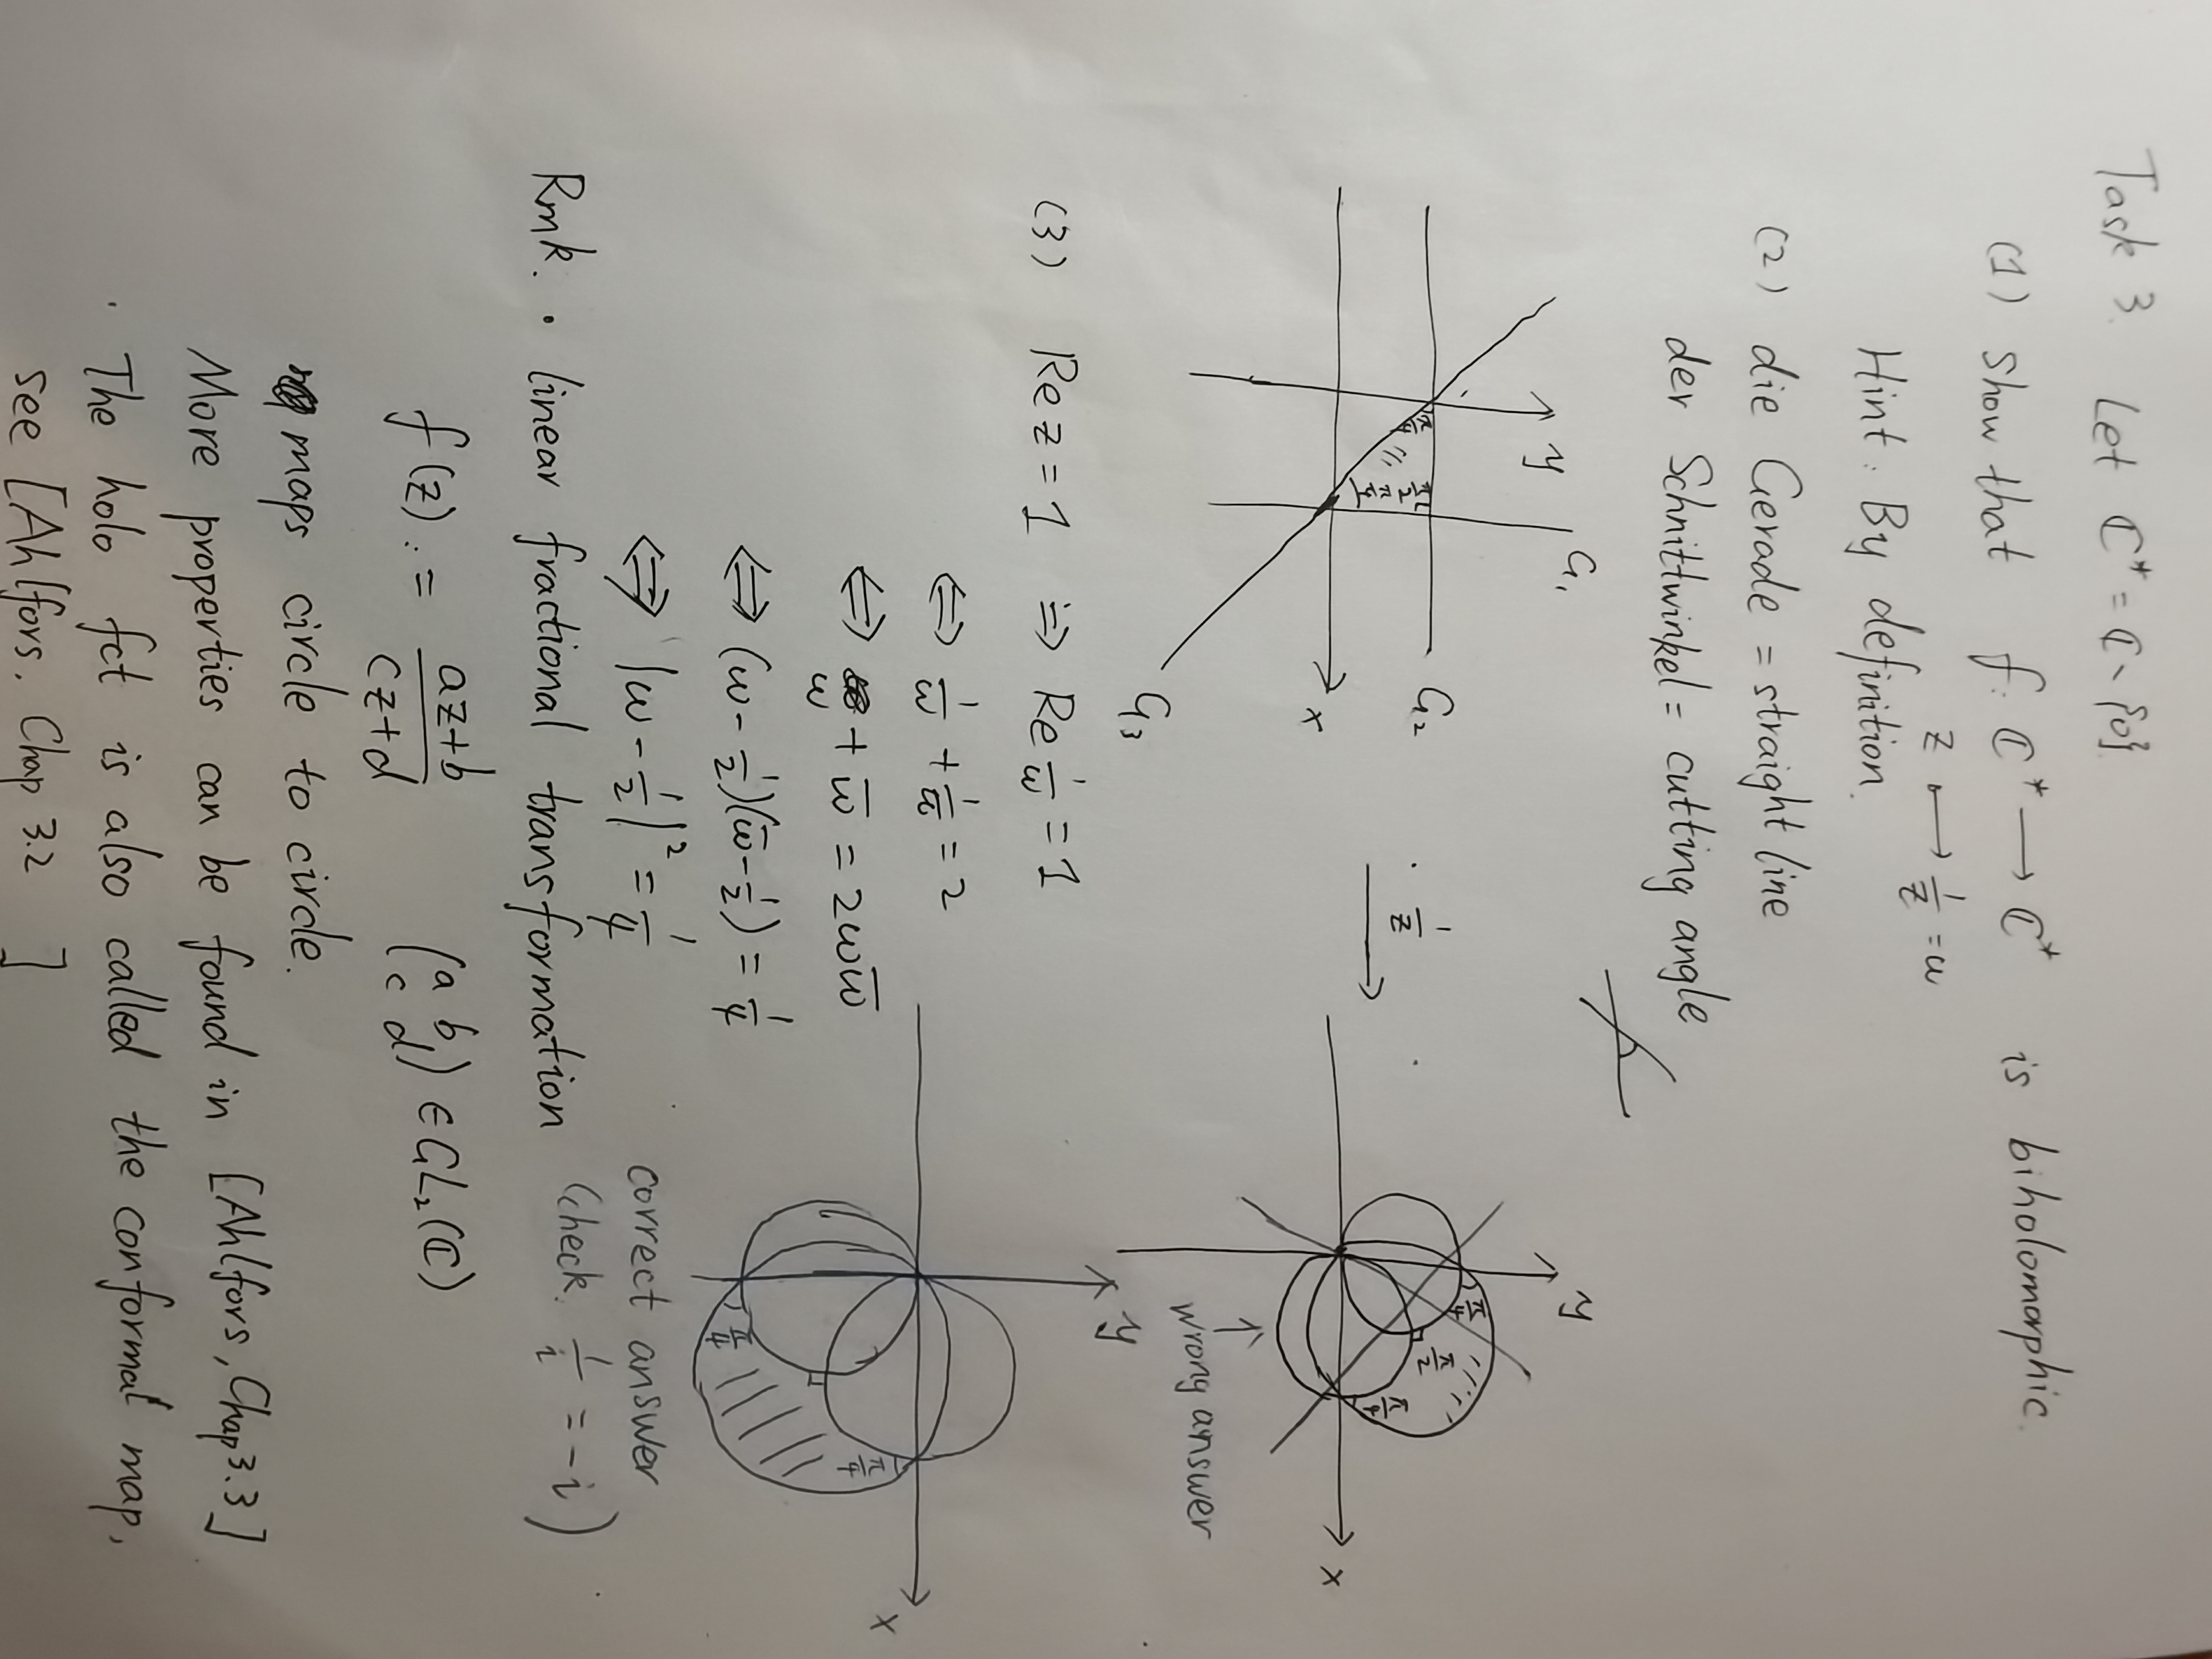 Task 3. Let ℂ* = ℂ \ {0}
(1) Show that f: ℂ* ⟶ ℂ* is biholomorphic.
z ⟼ 1/z = w
Hint: By definition.
(2) die Gerade = straight line
der Schnittwinkel = cutting angle
G₁
y
G₂
π/4
π/2
π/4
x
G₃
· 1/z ·
⟶
y
π/4
π/2
π/4
x
↑
wrong answer
(3) Re z = 1 ⇒ Re 1/ω = 1
⇔ 1/ω + 1/ω̅ = 2
⇔ ω + ω̅ = 2ωω̅
⇔ (ω - 1/2)(ω̅ - 1/2) = 1/4
⇔ |ω - 1/2|² = 1/4
y
x
π/4
π/4
correct answer
(check. 1/i = -i)
Rmk. · linear fractional transformation
f(z) := (az+b)/(cz+d) (a b, c d) ∈ GL₂(ℂ)
maps circle to circle.
More properties can be found in [Ahlfors, Chap 3.3]
· The holo fct is also called the conformal map,
see [Ahlfors. Chap 3.2 ]